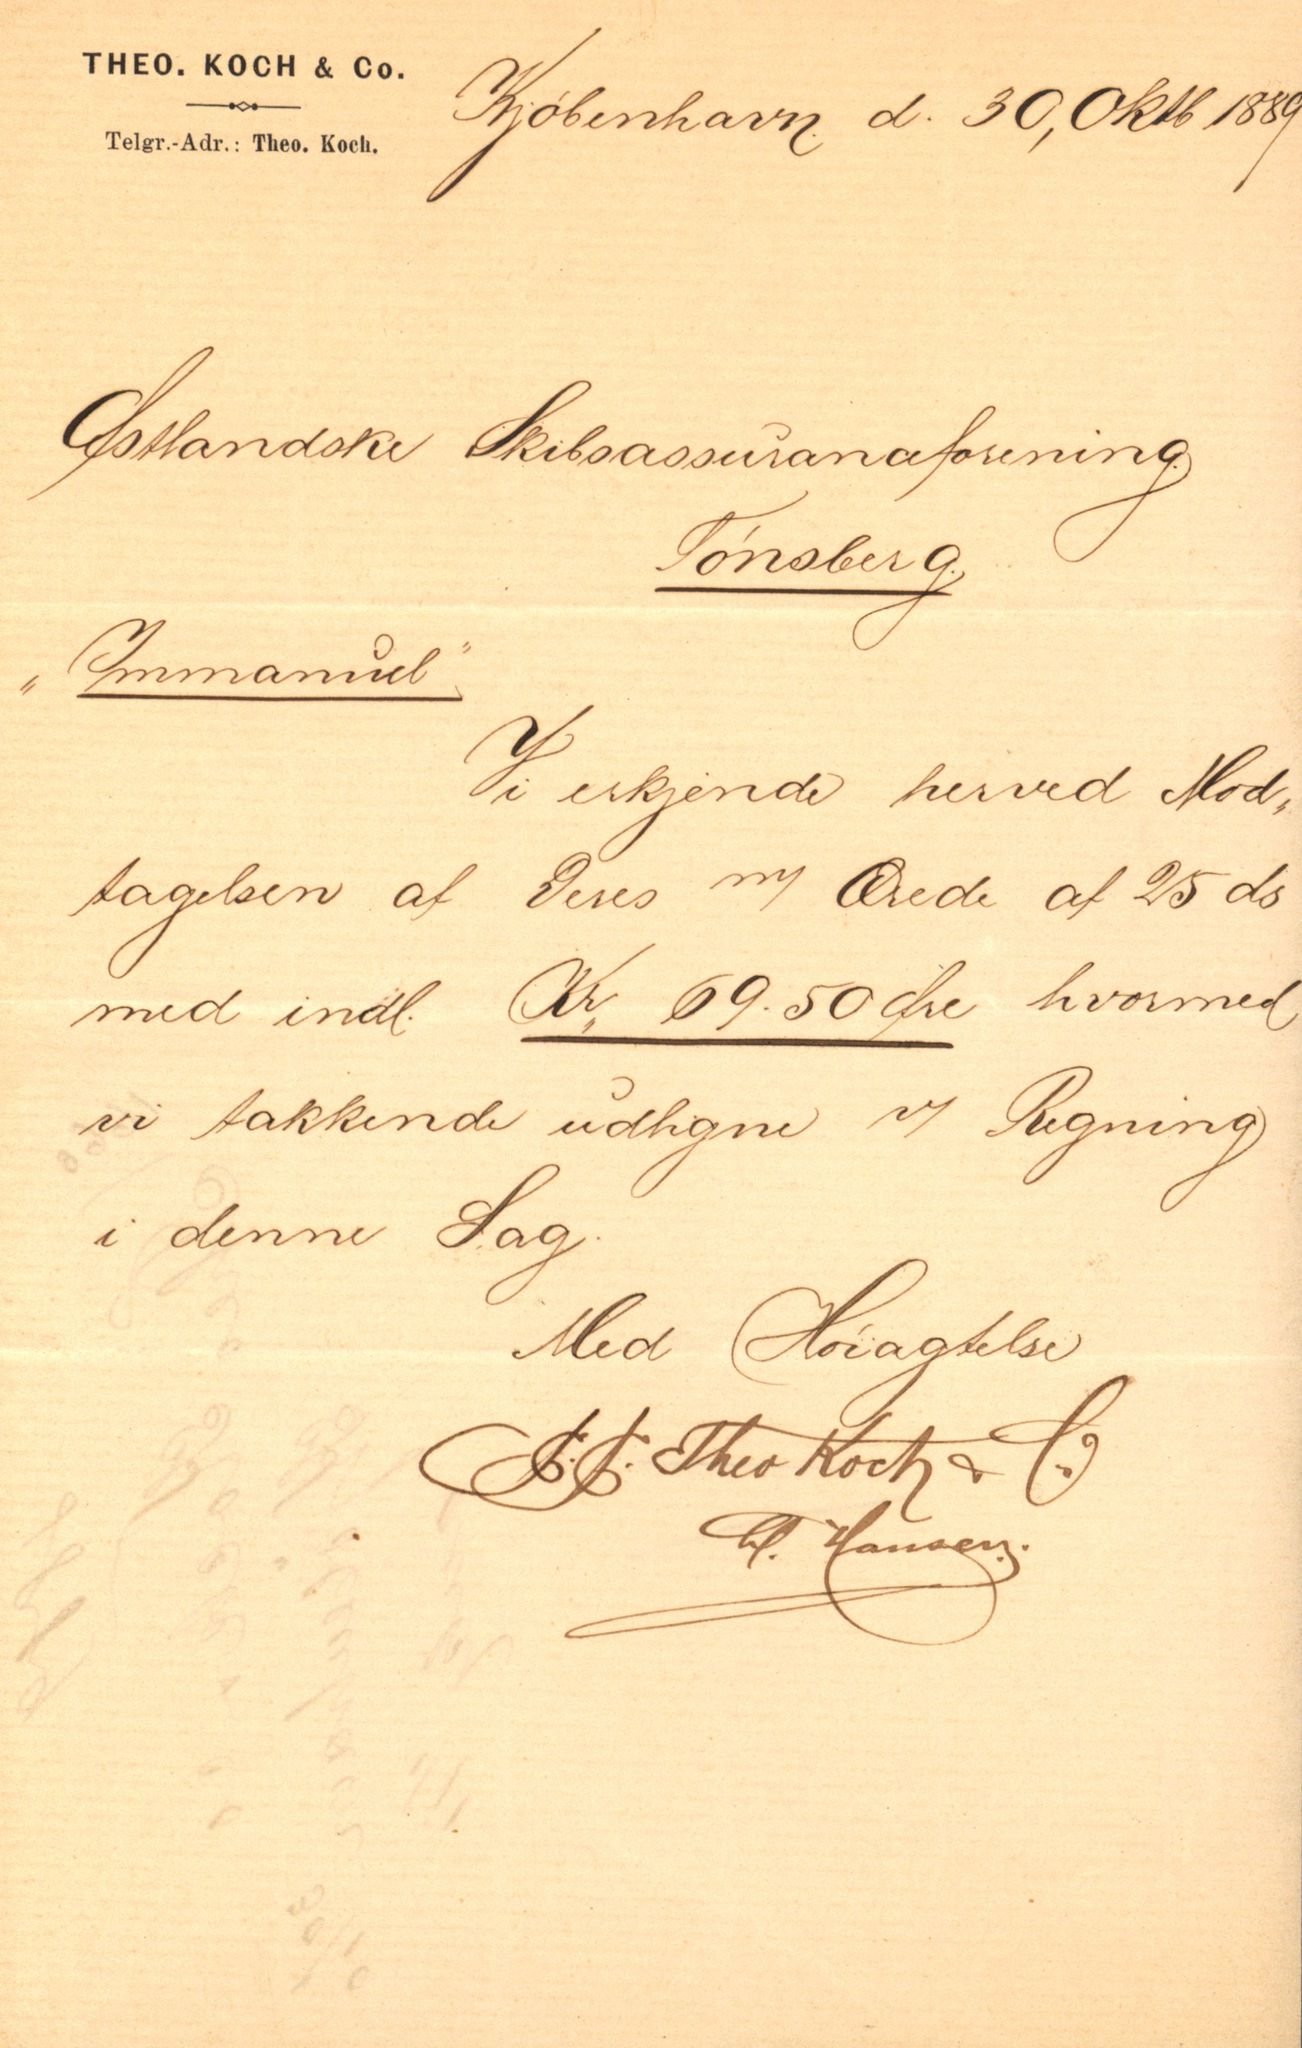 THEO. KOCH & Co.
Telgr.-Adr.: Theo. Koch.
Kjöbenhavn. d. 30, Oktb 1889
Østlandske Skibsassuranceforening.
Tönsberg.
„Immanuel"
Vi erkjende herved Mod„
tagelsen af Deres m/ Ærede af 25 ds
med indl. Kr„ 69.50 Øre hvormed
vi takkende udligne v/ Regning
i denne Sag.
Med Höiagtelse
Theo Koch & Co.
Hansen.